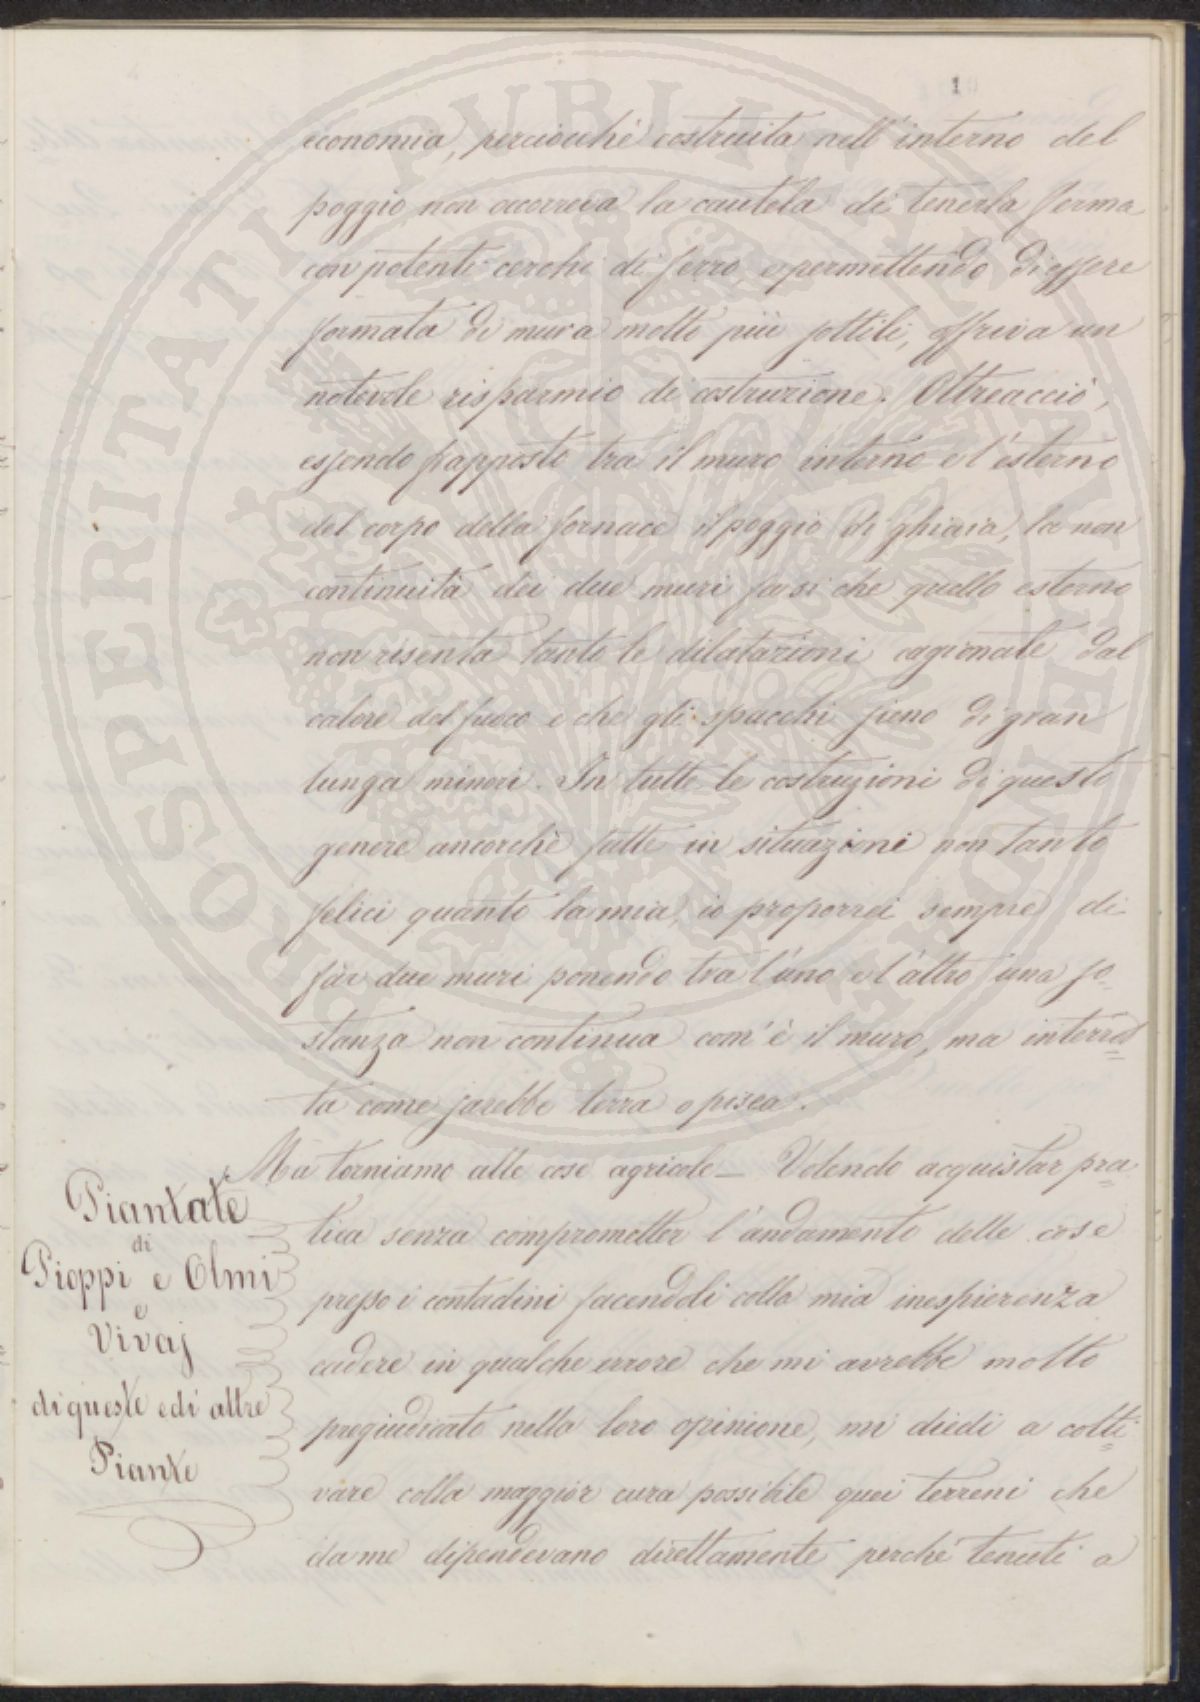 1
economia, perciocchè costruita nell'interno del
poggio non occorreva la cautela di tenerla ferma
con potenti cerchi di ferro, e permettendo di essere
formata di mura molto più sottili, offriva un
notevole risparmio di costruzione. Oltreacciò,
essendo frapposto tra il muro interno e l'esterno
del corpo della fornace il poggio di ghiaia, la non
continuità dei due muri fa si che quello esterno
non risenta tanto le dilatazioni cagionate dal
calore del fuoco e che gli spacchi sieno di gran
lunga minori. In tutte le costruzioni di questo
genere ancorchè fatte in situazioni non tanto
felici quanto la mia, io proporrei sempre di
far due muri ponendo tra l'uno e l'altro una so=
stanza non continua com'è il muro, ma interrot=
ta come sarebbe terra o pisea.
Ma torniamo alle cose agricole — Volendo acquistar pra=
tica senza compromettere l'andamento delle cose
presso i contadini facendoli colla mia inespierenza
cadere in qualche errore che mi avrebbe molto
pregiudicato nella loro opinione, mi diedi a colti=
vare colla maggior cura possibile quei terreni che
da me dipendevano direttamente perchè tenuti a
Piantate
di
Pioppi e Olmi
e
Vivaj
di queste e di altre
Piante
PROSPERITATI PVBLICAE AVGENDAE